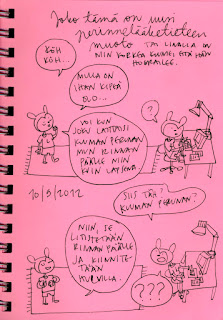 Joko tämä on uusi
perinnelääketieteen
muoto tai Liralla on
niin korkea kuume, että hän
hourailee.
KÖH
KÖH...
MULLA ON
IHAN KIPEÄ
OLO...
?
VOI KUN
JOKU LAITTAISI
KUUMAN PERUNAN
MUN RINNAN
PÄÄLLE NIIN
KUIN LAPSENA.
10/5/2012
SIIS TÄH?
KUUMAN PERUNAN?
NIIN, SE
LITISTETÄÄN
RINNAN PÄÄLLE
JA KIINNITE-
TÄÄN
HUIVILLA.
???